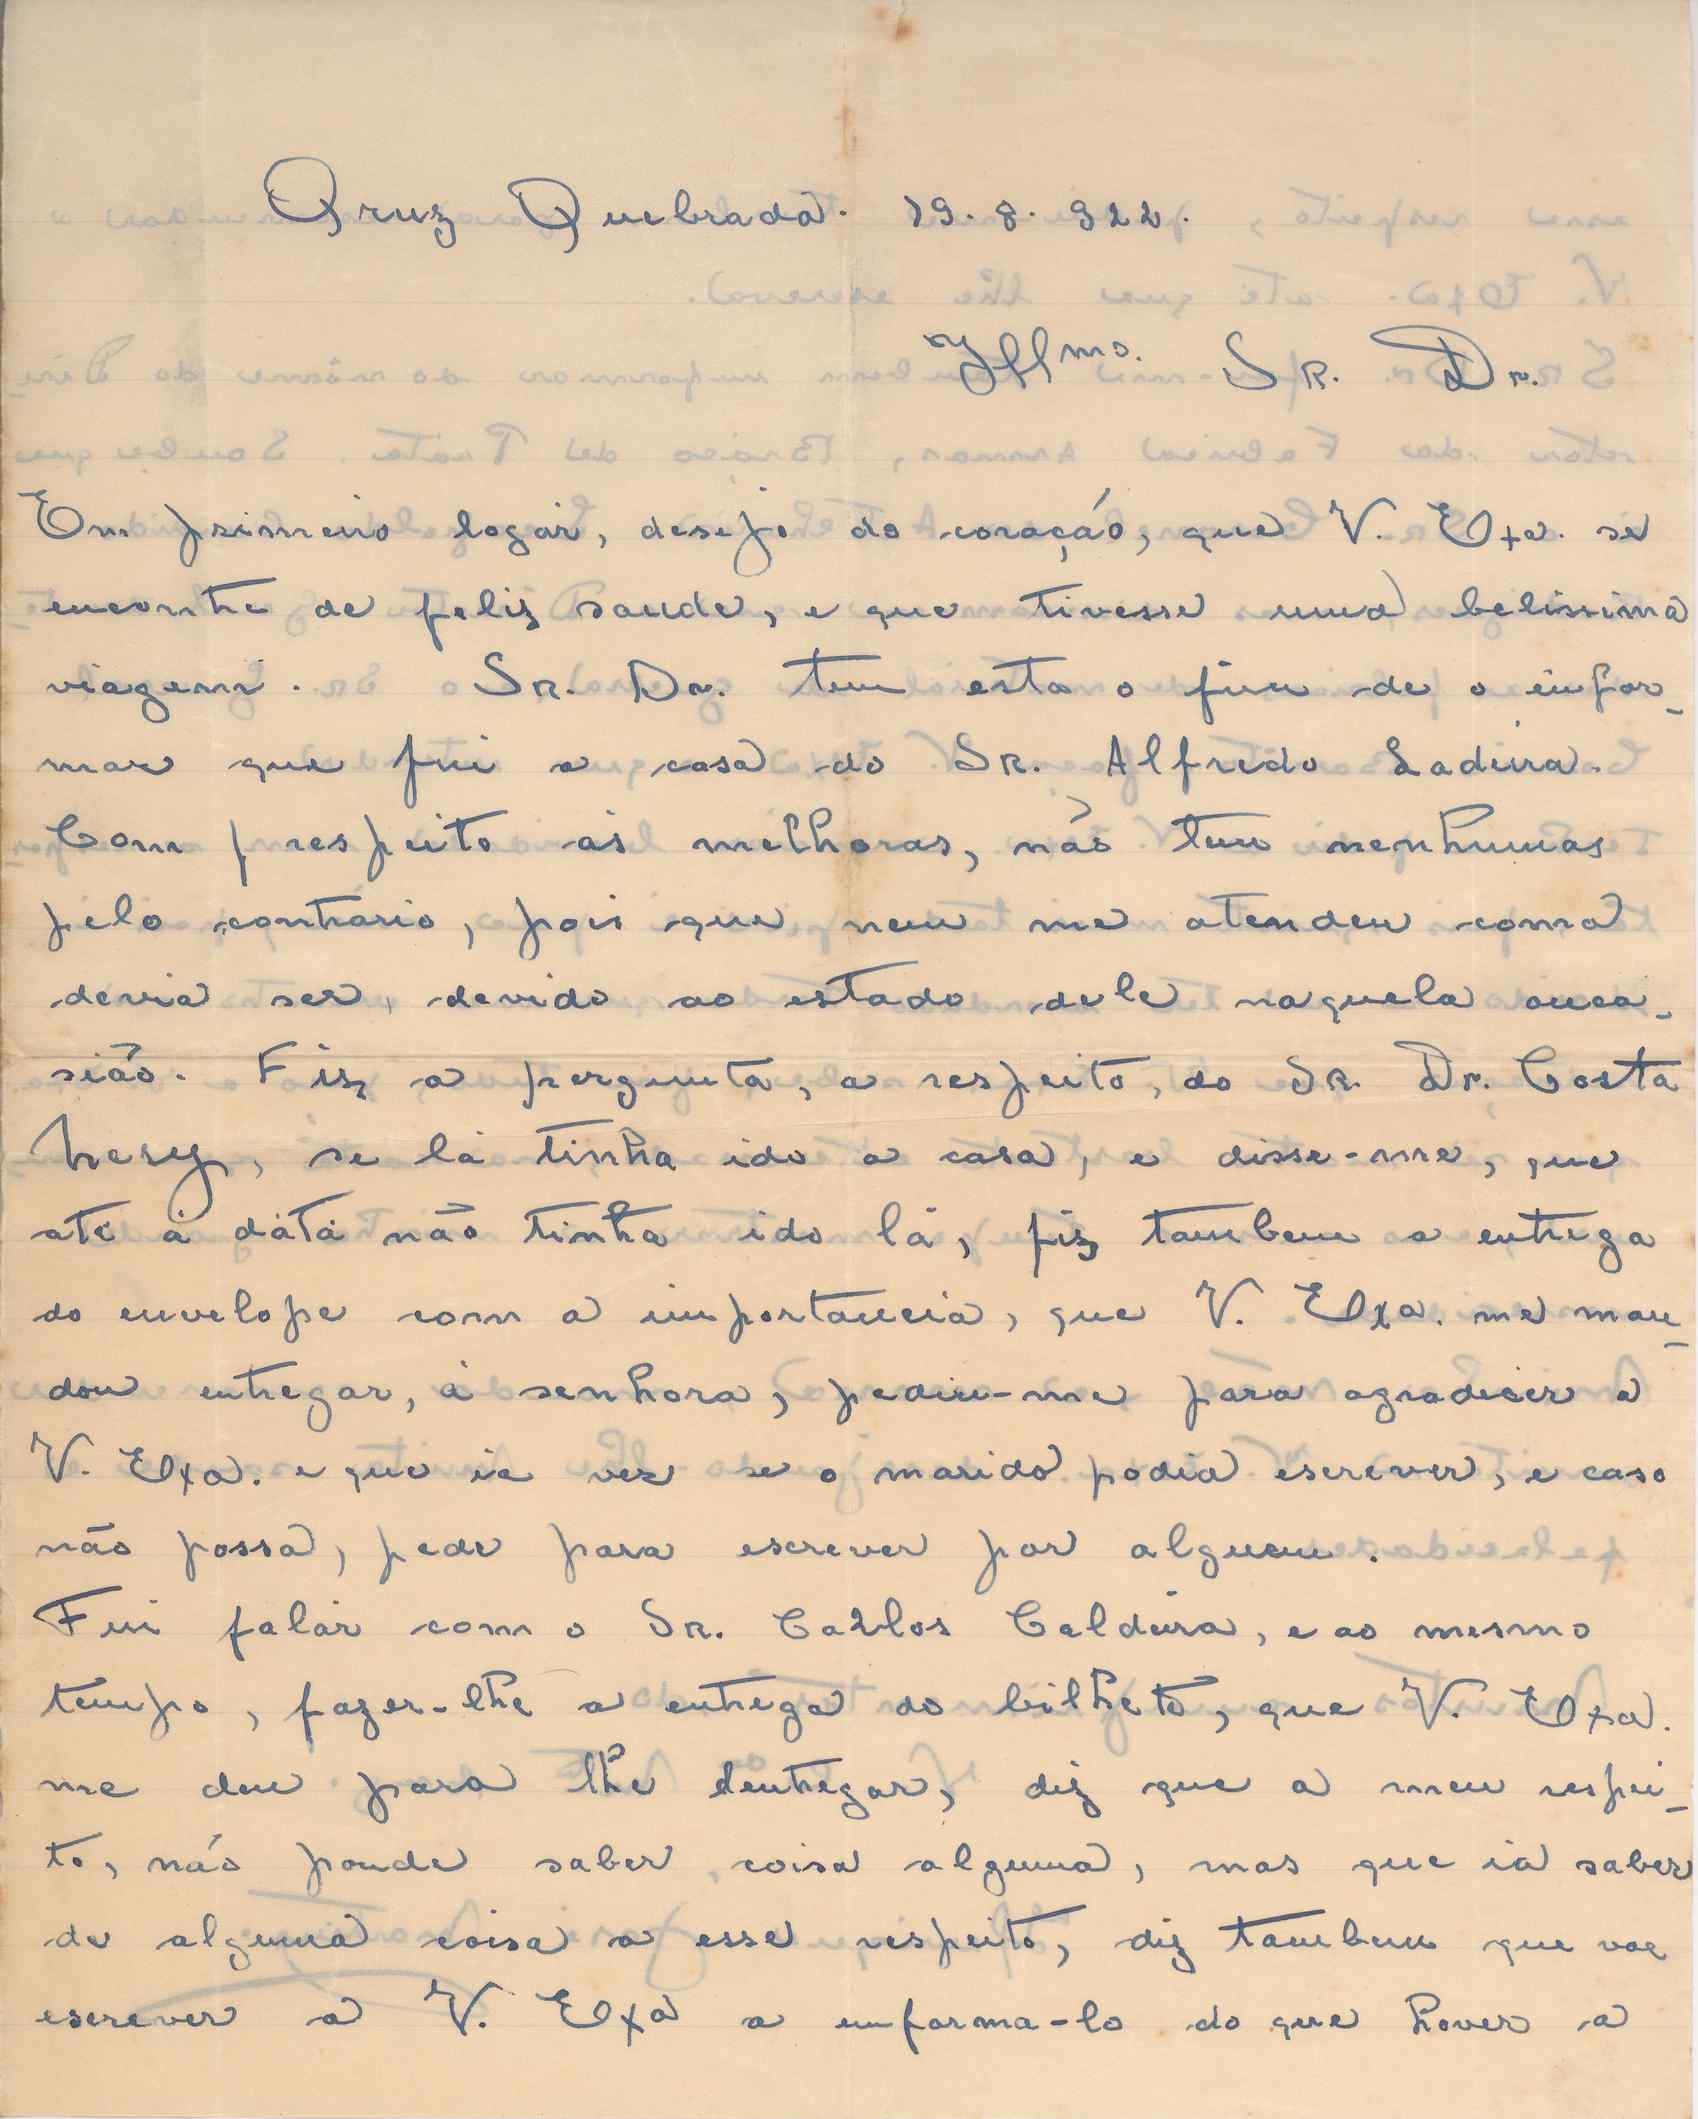 Cruz Quebrada. 19.8.922.
Illmo. Sr. Dr.
Em primeiro logar, desejo do coração, que V. Exa. se
encontre de feliz saude, e que tivesse uma belissima
viagem. Sr. Dr. tem esta o fim de o infor-
mar que fui a casa do Sr. Alfredo Ladeira.
Com respeito ás melhoras, não tem nenhumas
pelo contrario, pois que nem me atendeu como
devia ser, devido ao estado dele naquela ouca-
sião. Fiz a pergunta, a respeito, do Sr. Dr. Costa
Nery, se lá tinha ido a casa, e disse-me, que
até á data não tinha ido lá, fiz tambem a entrega
do envelope com a importancia, que V. Exa. me man-
dou entregar, á senhora, pediu-me para agradecer a
V. Exa. e que ia ver se o marido podia escrever, e caso
não possa, pede para escrever por alguem.
Fui falar com o Sr. Carlos Caldeira, e ao mesmo
tempo, fazer-lhe a entrega do bilhete, que V. Exa.
me deu para lhe entregar, diz que a meu respei-
to, não poude saber coisa alguma, mas que ia saber
de alguma coisa a esse respeito, diz tambem que vae
escrever a V. Exa a informa-lo do que hover a